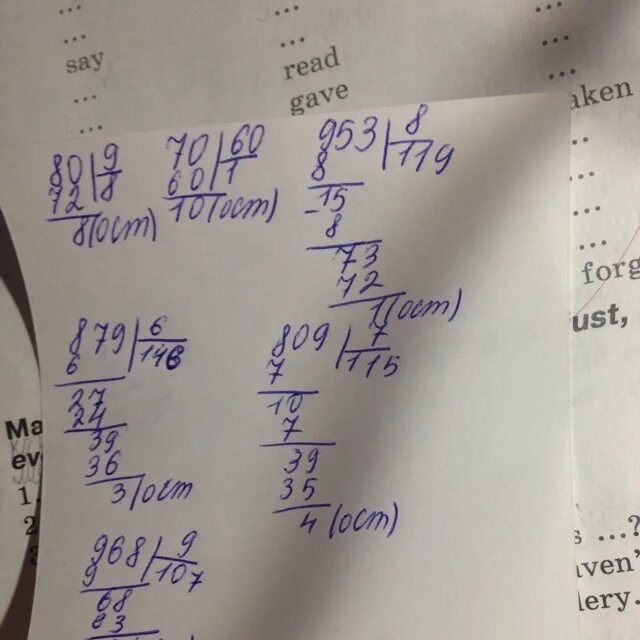 ...
...
say
...
...
read
gave
...
...
aken
...
...
...
...
forg
ust,
80 | 9
72 | 8
8 (ост)
70 | 60
60 | 1
10 (ост)
953 | 8
8 | 119
-15
8
73
72
1 (ост)
879 | 6
6 | 146
27
24
39
36
3 (ост
809 | 7
7 | 115
10
7
39
35
4 (ост)
968 | 9
9 | 107
68
63
Ma
ev
1.
2
s ...?
aven'
lery.